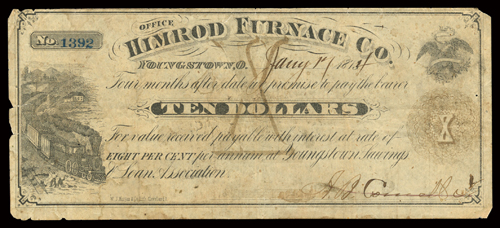 OFFICE
HIMROD FURNACE CO.
No. 1392
YOUNGSTOWN, O. Jany 18
Four months after date we promise to pay the bearer
TEN DOLLARS
For value received, payable with interest at rate of
EIGHT PER CENT per annum at Youngstown Savings
& Loan Association.
X